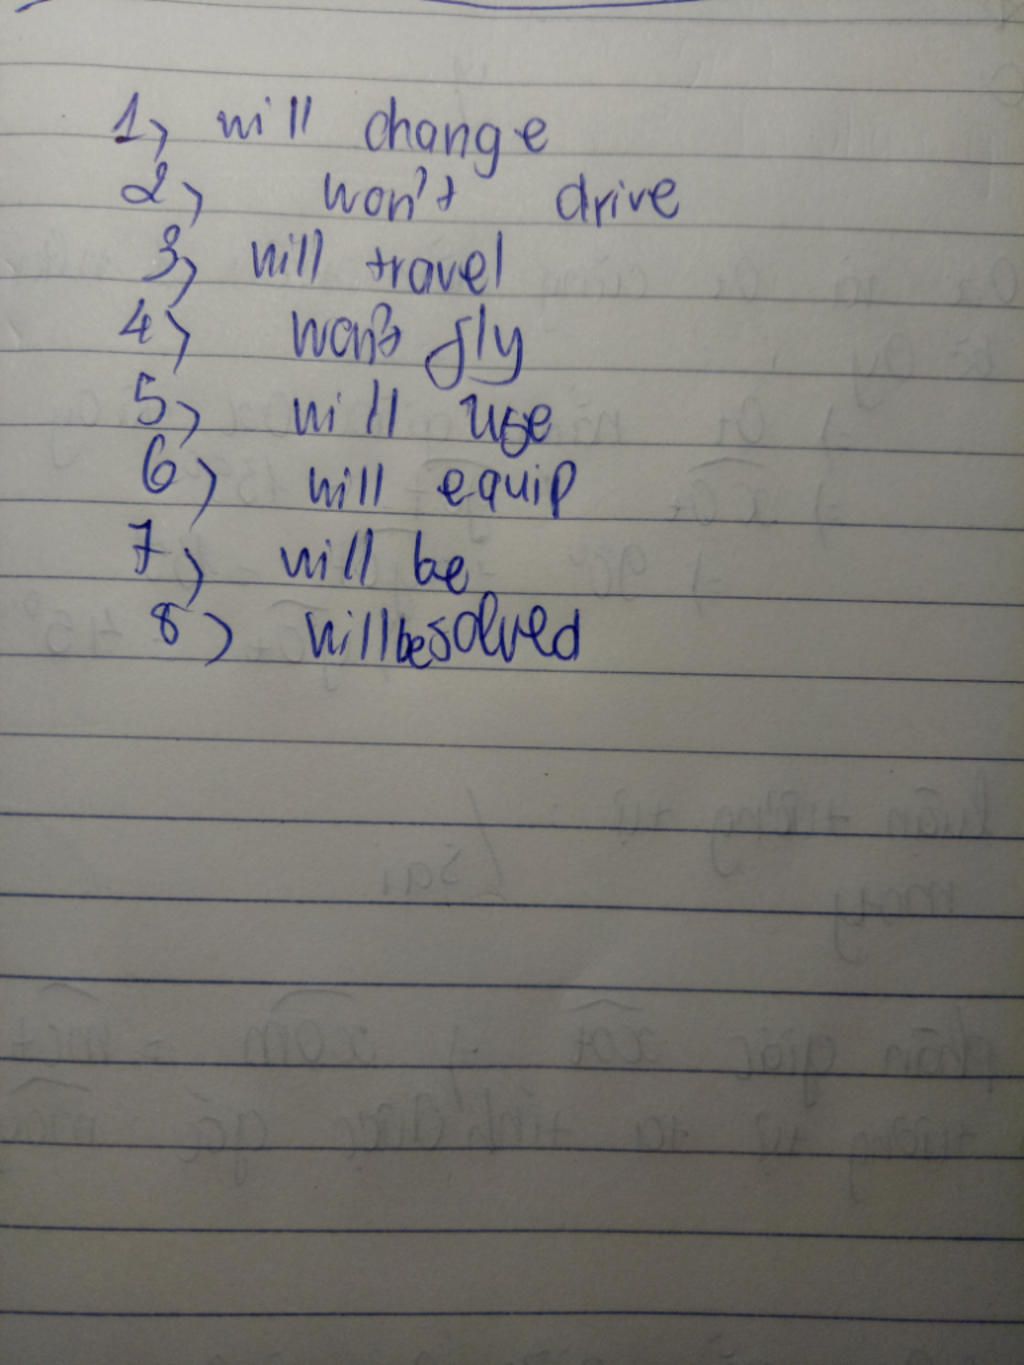 1, will change
2, won't drive
3, will travel
4, won't fly
5, will use
6, will equip
7, will be
8, will be solved